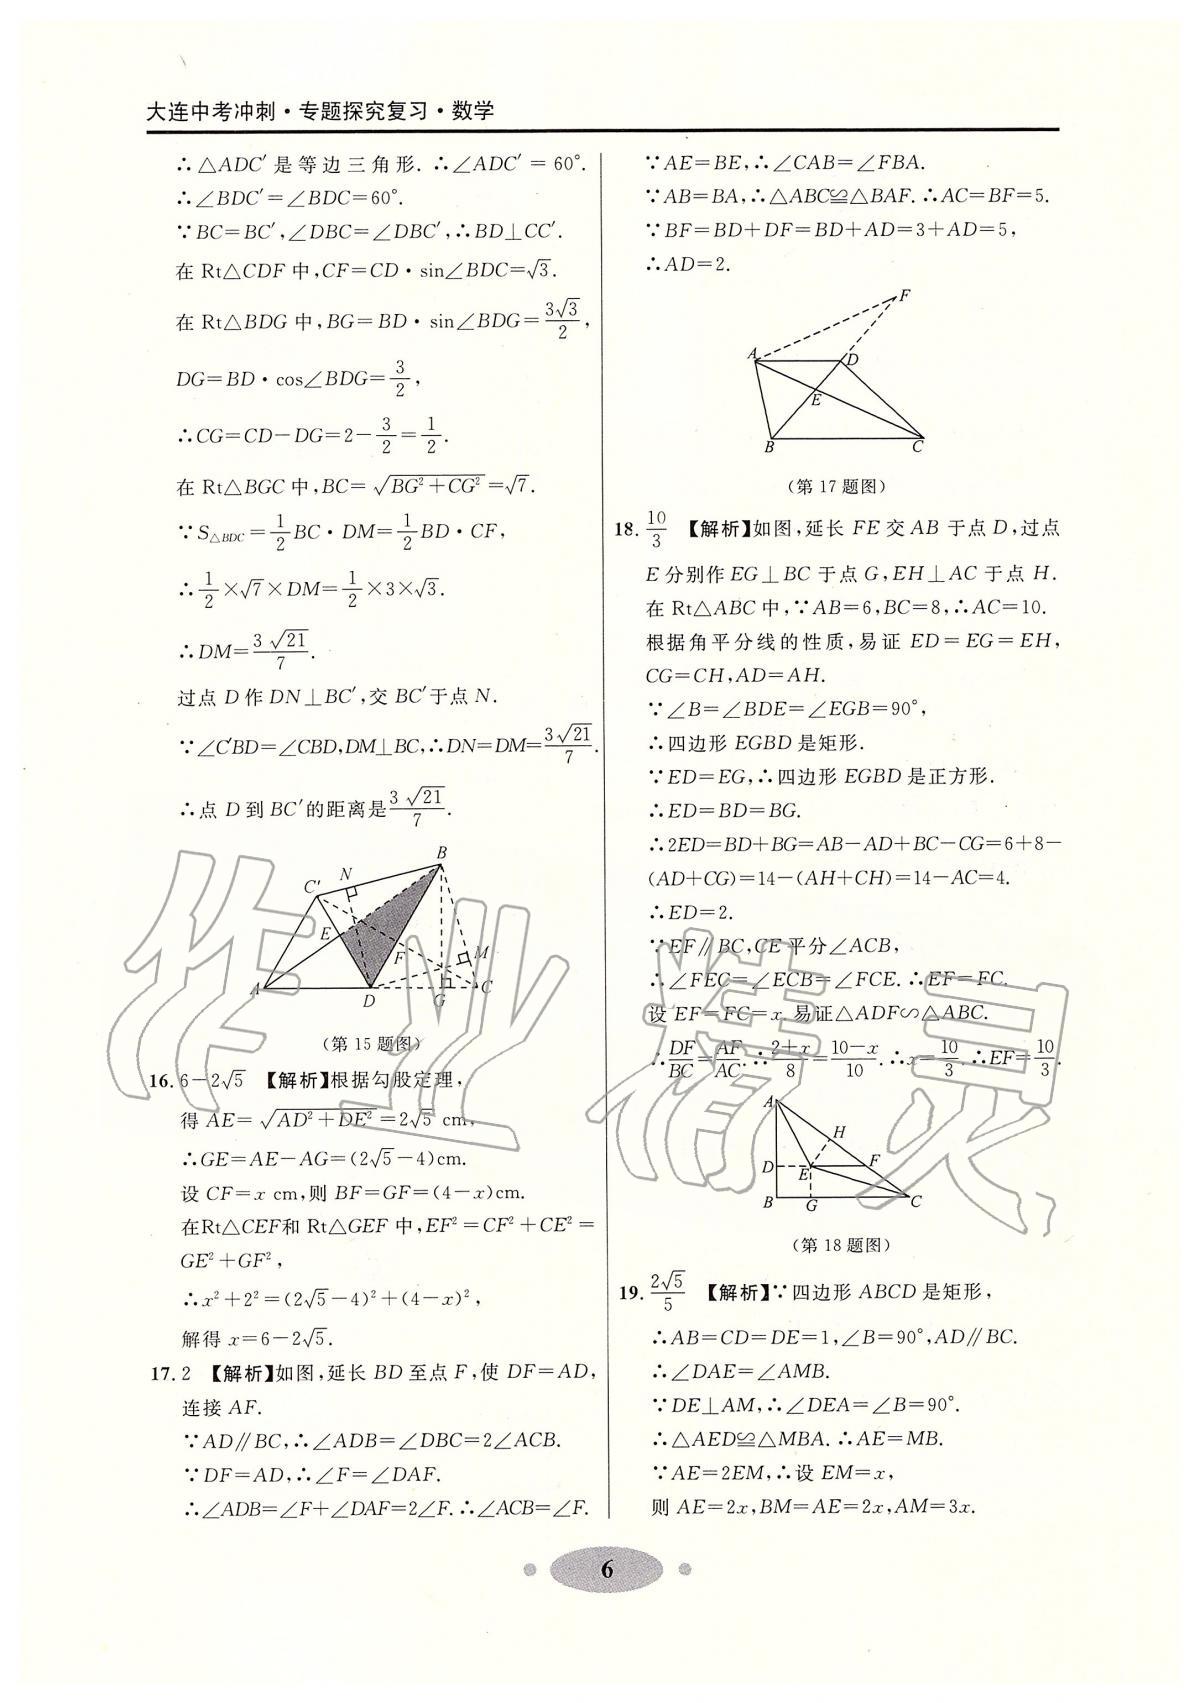 大连中考冲刺·专题探究复习·数学
∴△ADC′是等边三角形. ∴∠ADC′=60°.
∴∠BDC′=∠BDC=60°.
∵BC=BC′,∠DBC=∠DBC′,∴BD⊥CC′.
在 Rt△CDF 中,CF=CD·sin∠BDC=√3.
在 Rt△BDG 中,BG=BD·sin∠BDG=3√3/2,
DG=BD·cos∠BDG=3/2,
∴CG=CD-DG=2-3/2=1/2.
在 Rt△BGC 中,BC=√(BG²+CG²)=√7.
∵S△BDC=1/2BC·DM=1/2BD·CF,
∴1/2×√7×DM=1/2×3×√3.
∴DM=3√21/7.
过点 D 作 DN⊥BC′,交 BC′于点 N.
∵∠C′BD=∠CBD,DM⊥BC,∴DN=DM=3√21/7.
∴点 D 到 BC′的距离是3√21/7.
B
N
C′
E
F
M
A
D
G
C
(第 15 题图)
16. 6-2√5 【解析】根据勾股定理,
得 AE=√(AD²+DE²)=2√5 cm,
∴GE=AE-AG=(2√5-4)cm.
设 CF=x cm,则 BF=GF=(4-x)cm.
在Rt△CEF和 Rt△GEF 中,EF²=CF²+CE²=
GE²+GF²,
∴x²+2²=(2√5-4)²+(4-x)²,
解得 x=6-2√5.
17. 2 【解析】如图,延长 BD 至点 F,使 DF=AD,
连接 AF.
∵AD∥BC,∴∠ADB=∠DBC=2∠ACB.
∵DF=AD,∴∠F=∠DAF.
∴∠ADB=∠F+∠DAF=2∠F.∴∠ACB=∠F.
∵AE=BE,∴∠CAB=∠FBA.
∵AB=BA,∴△ABC≌△BAF.∴AC=BF=5.
∵BF=BD+DF=BD+AD=3+AD=5,
∴AD=2.
F
A
D
E
B
C
(第 17 题图)
18. 10/3 【解析】如图,延长 FE 交 AB 于点 D,过点
E 分别作 EG⊥BC 于点 G,EH⊥AC 于点 H.
在 Rt△ABC 中,∵AB=6,BC=8,∴AC=10.
根据角平分线的性质,易证 ED=EG=EH,
CG=CH,AD=AH.
∵∠B=∠BDE=∠EGB=90°,
∴四边形 EGBD 是矩形.
∵ED=EG,∴四边形 EGBD 是正方形.
∴ED=BD=BG.
∴2ED=BD+BG=AB-AD+BC-CG=6+8-
(AD+CG)=14-(AH+CH)=14-AC=4.
∴ED=2.
∵EF∥BC,CE 平分∠ACB,
∴∠FEC=∠ECB=∠FCE.∴EF=FC.
设 EF=FC=x.易证△ADF∽△ABC.
∴DF/BC=AF/AC.∴(2+x)/8=(10-x)/10.∴x=10/3.∴EF=10/3.
A
H
D
E
F
B
G
C
(第 18 题图)
19. 2√5/5 【解析】∵四边形 ABCD 是矩形,
∴AB=CD=DE=1,∠B=90°,AD∥BC.
∴∠DAE=∠AMB.
∵DE⊥AM,∴∠DEA=∠B=90°.
∴△AED≌△MBA.∴AE=MB.
∵AE=2EM,∴设 EM=x,
则 AE=2x,BM=AE=2x,AM=3x.
6
作业精灵